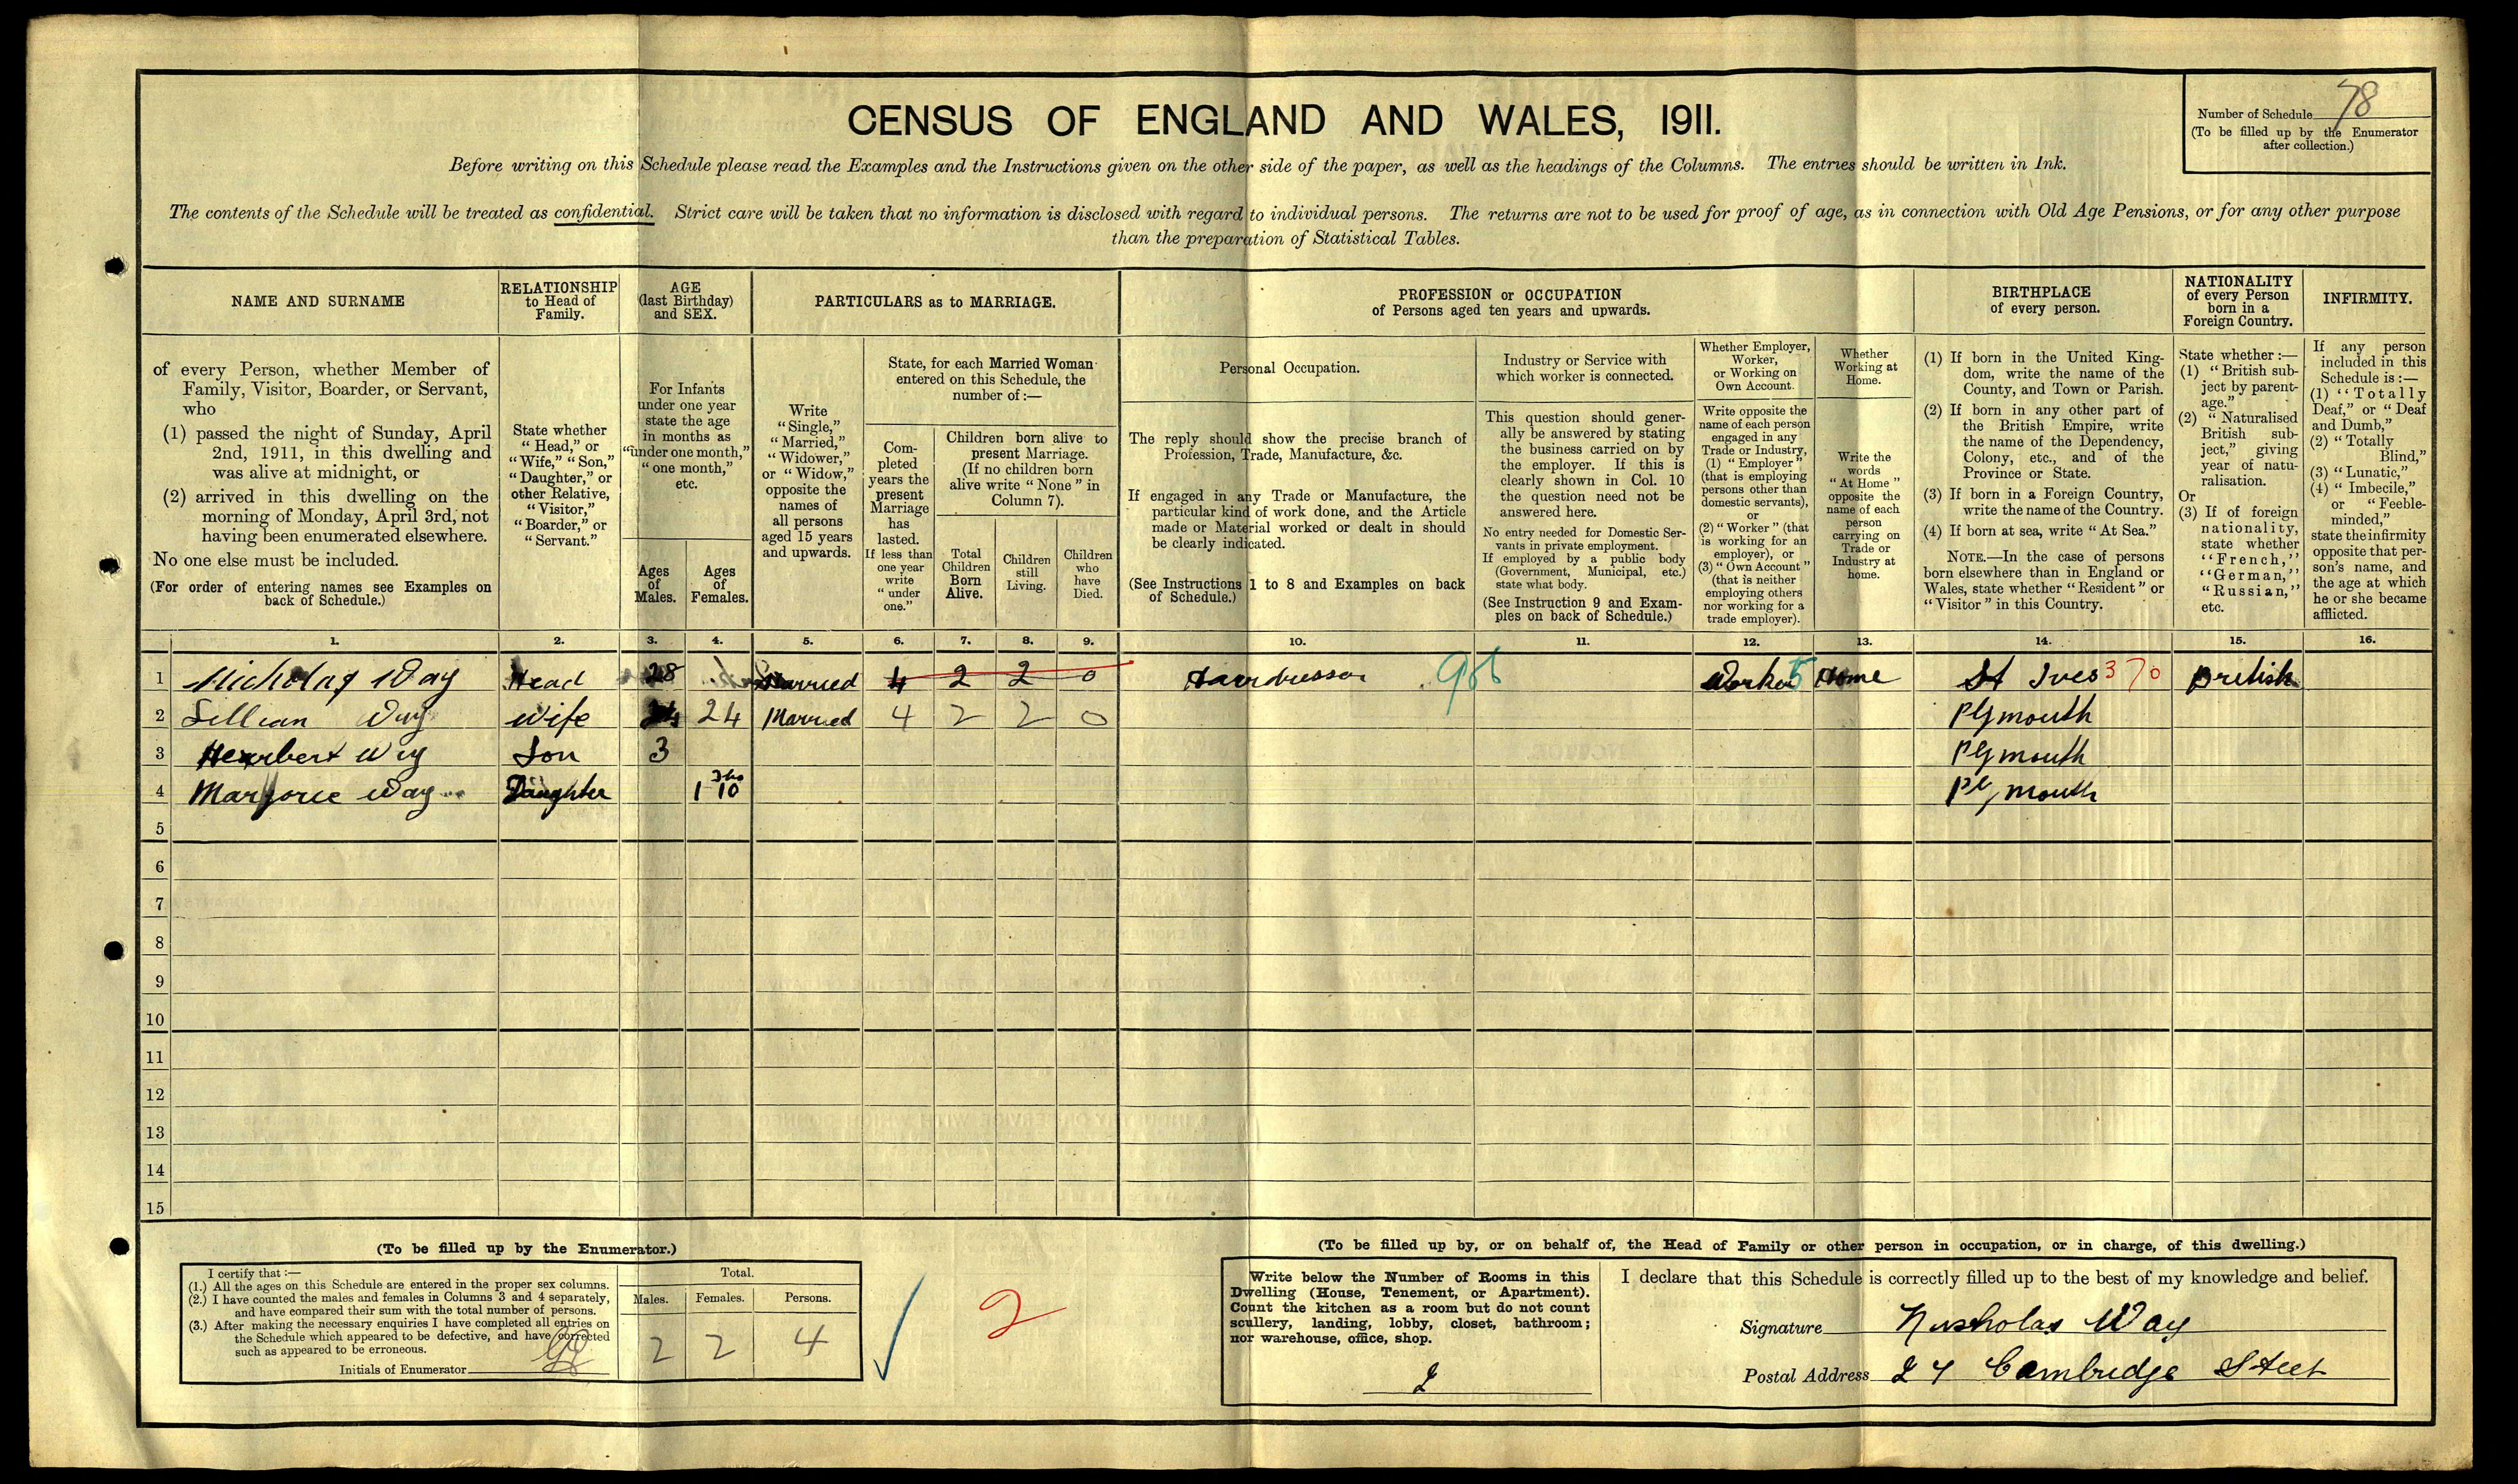 CENSUS OF ENGLAND AND WALES, 1911.
Number of Schedule 78
(To be filled up by the Enumerator
after collection.)
Before writing on this Schedule please read the Examples and the Instructions given on the other side of the paper, as well as the headings of the Columns. The entries should be written in Ink.
The contents of the Schedule will be treated as confidential. Strict care will be taken that no information is disclosed with regard to individual persons. The returns are not to be used for proof of age, as in connection with Old Age Pensions, or for any other purpose
than the preparation of Statistical Tables.
NAME AND SURNAME
of every Person, whether Member of
Family, Visitor, Boarder, or Servant,
who
(1) passed the night of Sunday, April
2nd, 1911, in this dwelling and
was alive at midnight, or
(2) arrived in this dwelling on the
morning of Monday, April 3rd, not
having been enumerated elsewhere.
No one else must be included.
(For order of entering names see Examples on
back of Schedule.)
RELATIONSHIP
to Head of
Family.
State whether
"Head," or
"Wife," "Son,"
"Daughter," or
other Relative,
"Visitor,"
"Boarder," or
"Servant."
AGE
(last Birthday)
and SEX.
For Infants
under one year
state the age
in months as
"under one month,"
"one month,"
etc.
Ages
of
Males.
Ages
of
Females.
PARTICULARS as to MARRIAGE.
Write
"Single,"
"Married,"
"Widower,"
or "Widow,"
opposite the
names of
all persons
aged 15 years
and upwards.
State, for each Married Woman
entered on this Schedule, the
number of :—
Com-
pleted
years the
present
Marriage
has
lasted.
If less than
one year
write
"under
one."
Children born alive to
present Marriage.
(If no children born
alive write "None" in
Column 7).
Total
Children
Born
Alive.
Children
still
Living.
Children
who
have
Died.
PROFESSION or OCCUPATION
of Persons aged ten years and upwards.
Personal Occupation.
The reply should show the precise branch of
Profession, Trade, Manufacture, &c.
If engaged in any Trade or Manufacture, the
particular kind of work done, and the Article
made or Material worked or dealt in should
be clearly indicated.
(See Instructions 1 to 8 and Examples on back
of Schedule.)
Industry or Service with
which worker is connected.
This question should gener-
ally be answered by stating
the business carried on by
the employer. If this is
clearly shown in Col. 10
the question need not be
answered here.
No entry needed for Domestic Ser-
vants in private employment.
If employed by a public body
(Government, Municipal, etc.)
state what body.
(See Instruction 9 and Exam-
ples on back of Schedule.)
Whether Employer,
Worker,
or Working on
Own Account.
Write opposite the
name of each person
engaged in any
Trade or Industry,
(1) "Employer"
(that is employing
persons other than
domestic servants),
or
(2) "Worker" (that
is working for an
employer), or
(3) "Own Account"
(that is neither
employing others
nor working for a
trade employer).
Whether
Working at
Home.
Write the
words
"At Home"
opposite the
name of each
person
carrying on
Trade or
Industry at
home.
BIRTHPLACE
of every person.
(1) If born in the United King-
dom, write the name of the
County, and Town or Parish.
(2) If born in any other part of
the British Empire, write
the name of the Dependency,
Colony, etc., and of the
Province or State.
(3) If born in a Foreign Country,
write the name of the Country.
(4) If born at sea, write "At Sea."
NOTE.—In the case of persons
born elsewhere than in England or
Wales, state whether "Resident" or
"Visitor" in this Country.
NATIONALITY
of every Person
born in a
Foreign Country.
State whether :—
(1) "British sub-
ject by parent-
age."
(2) "Naturalised
British sub-
ject," giving
year of natu-
ralisation.
Or
(3) If of foreign
nationality,
state whether
"French,"
"German,"
"Russian,"
etc.
INFIRMITY.
If any person
included in this
Schedule is :—
(1) "Totally
Deaf," or "Deaf
and Dumb,"
(2) "Totally
Blind,"
(3) "Lunatic,"
(4) "Imbecile,"
or "Feeble-
minded,"
state the infirmity
opposite that per-
son's name, and
the age at which
he or she became
afflicted.
1. 2. 3. 4. 5. 6. 7. 8. 9. 10. 11. 12. 13. 14. 15. 16.
1 Nicholas Way Head 28 Married 4 2 2 0 Hairdresser 966 Worker 5 Home St Ives 370 British
2 Lillian Way Wife 24 Married 4 2 2 0 Plymouth
3 Herbert Way Son 3 Plymouth
4 Marjorie Way Daughter 1 10 Plymouth
5
6
7
8
9
10
11
12
13
14
15
(To be filled up by the Enumerator.)
I certify that :—
(1.) All the ages on this Schedule are entered in the proper sex columns.
(2.) I have counted the males and females in Columns 3 and 4 separately,
and have compared their sum with the total number of persons.
(3.) After making the necessary enquiries I have completed all entries on
the Schedule which appeared to be defective, and have corrected
such as appeared to be erroneous.
Initials of Enumerator
Total.
Males. Females. Persons.
2 2 4
2
(To be filled up by, or on behalf of, the Head of Family or other person in occupation, or in charge, of this dwelling.)
Write below the Number of Rooms in this
Dwelling (House, Tenement, or Apartment).
Count the kitchen as a room but do not count
scullery, landing, lobby, closet, bathroom;
nor warehouse, office, shop.
2
I declare that this Schedule is correctly filled up to the best of my knowledge and belief.
Signature Nicholas Way
Postal Address 24 Cambridge Street